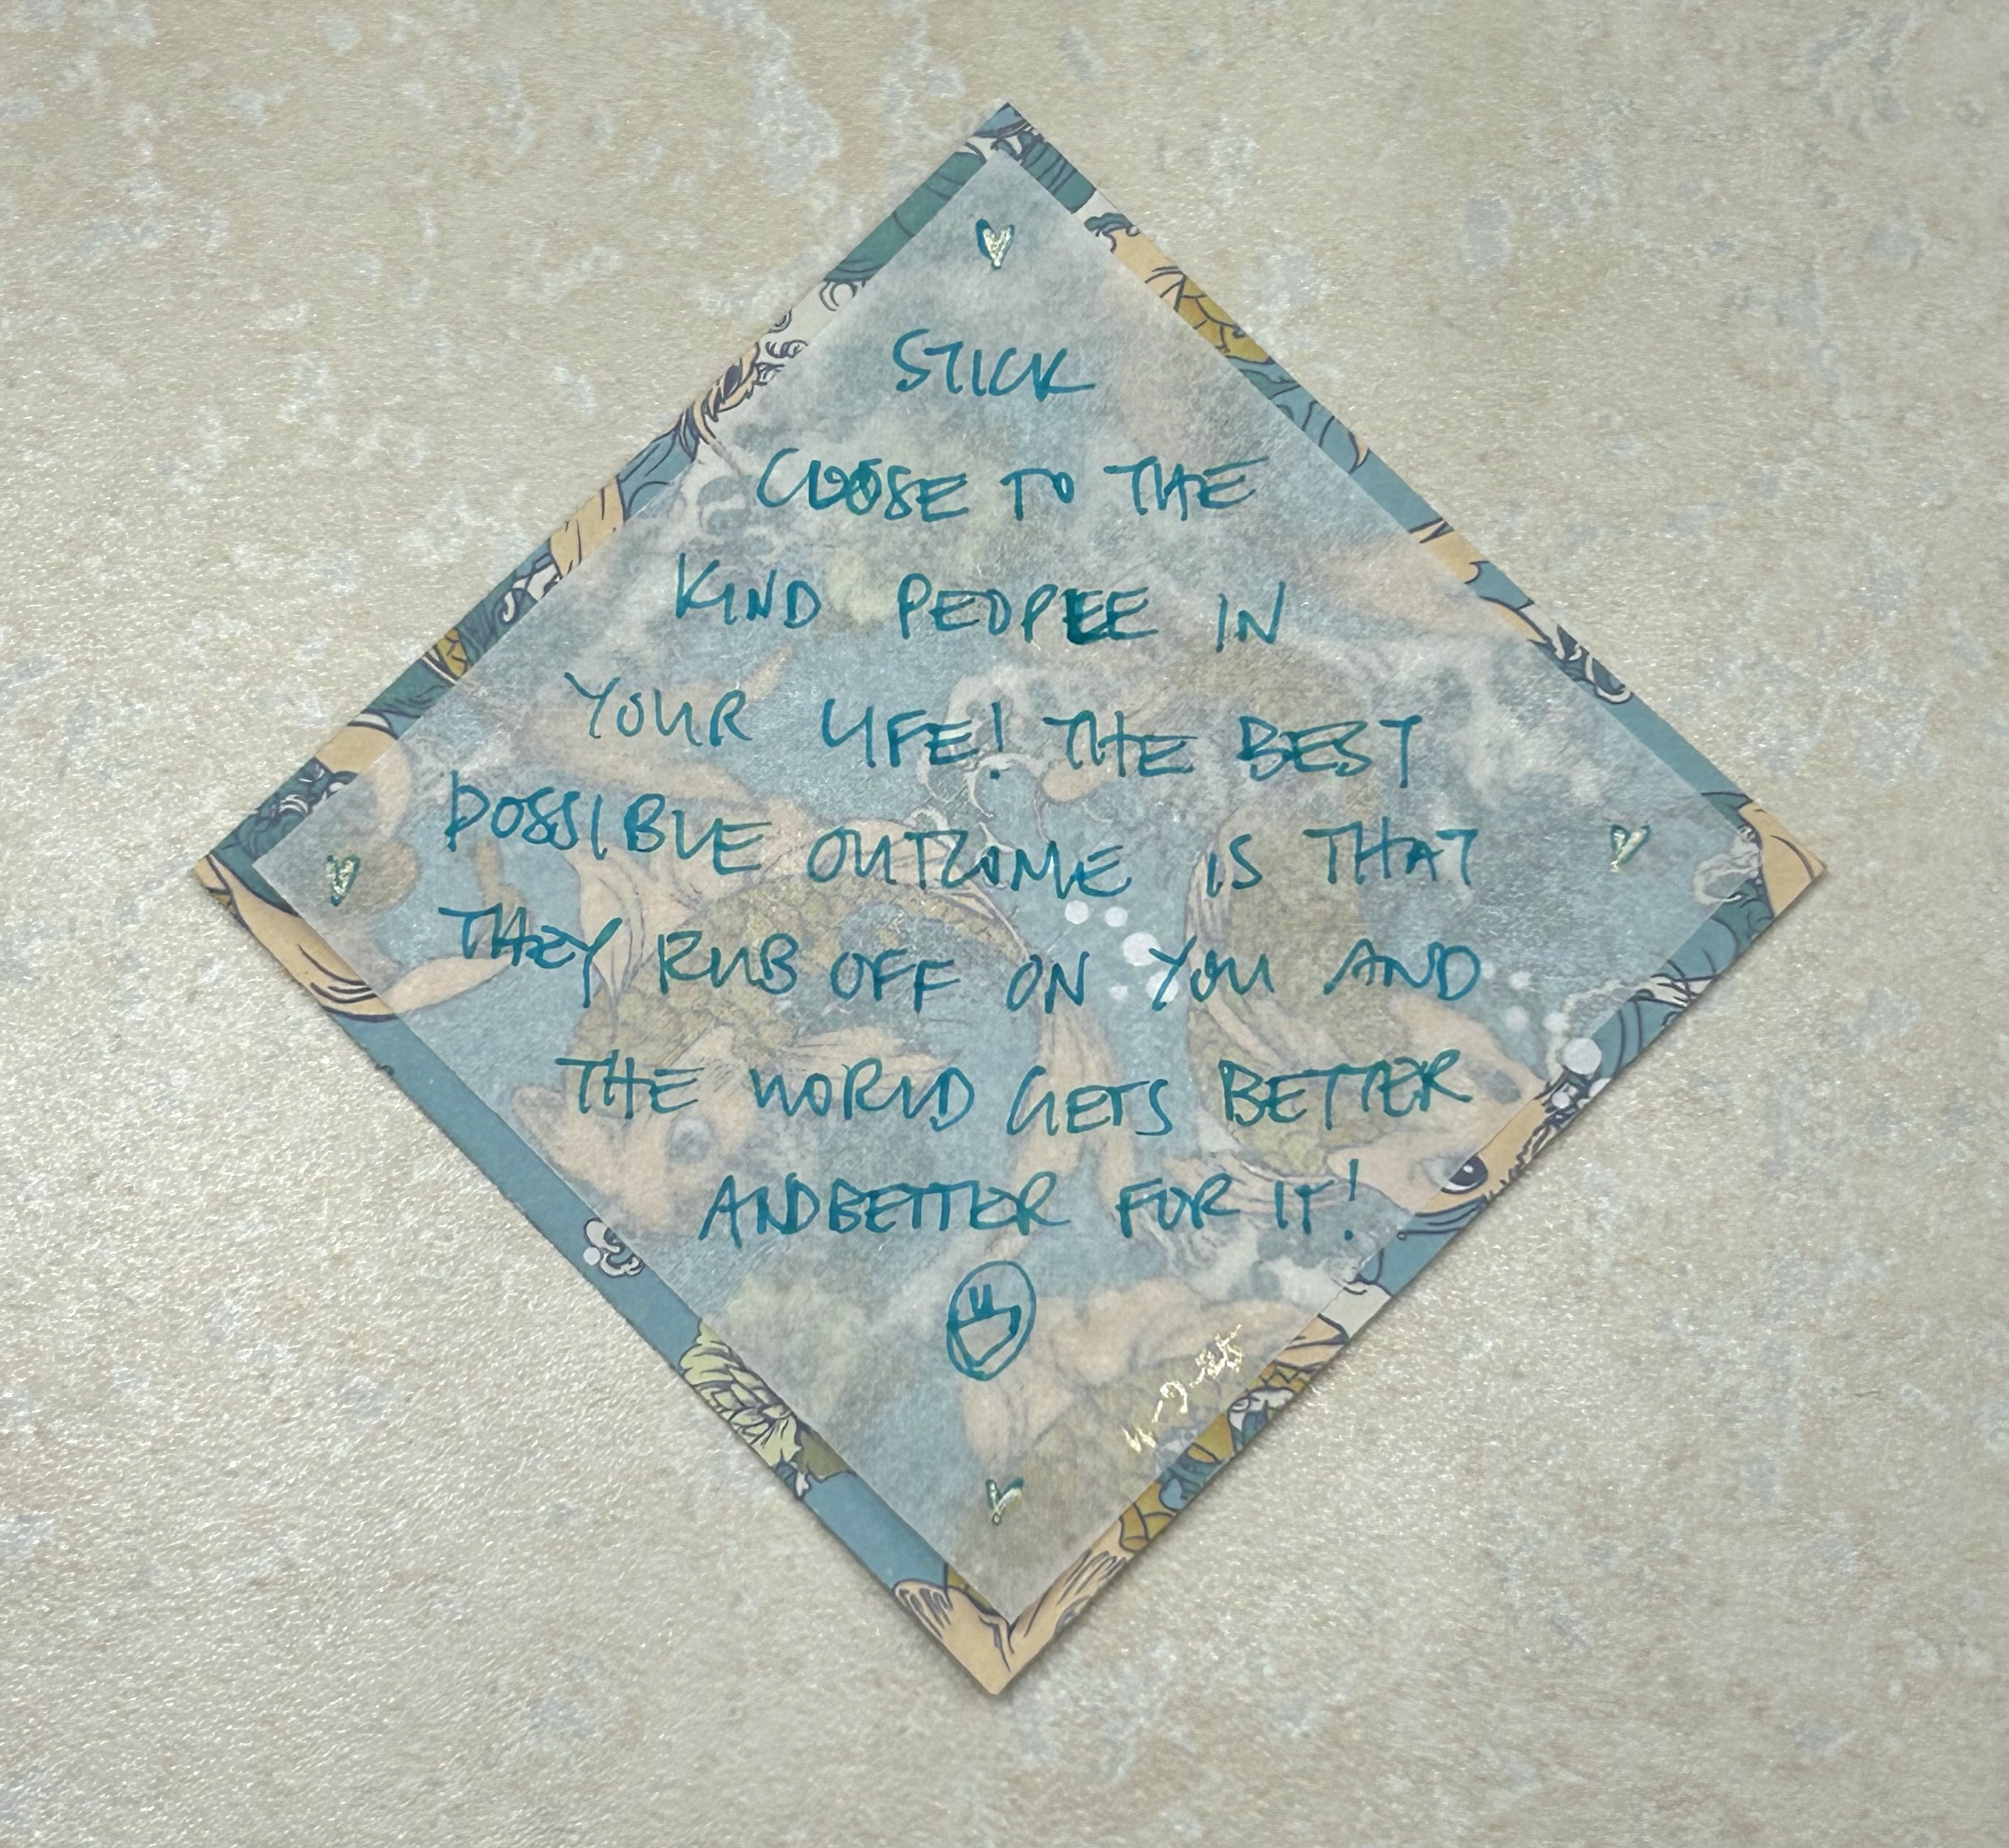 STICK
CLOSE TO THE
KIND PEOPLE IN
YOUR LIFE! THE BEST
POSSIBLE OUTCOME IS THAT
THEY RUB OFF ON YOU AND
THE WORLD GETS BETTER
ANDBETTER FOR IT!